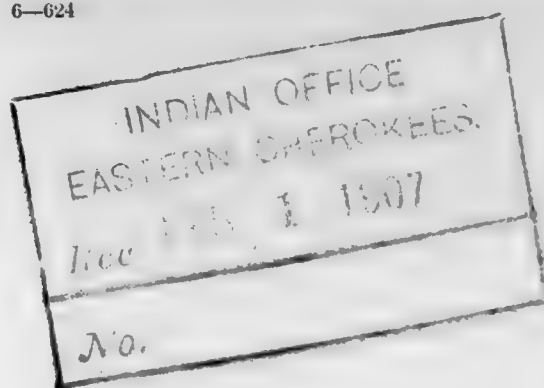 6—624
INDIAN OFFICE
EASTERN CHEROKEES.
Rec 1 1907
No.